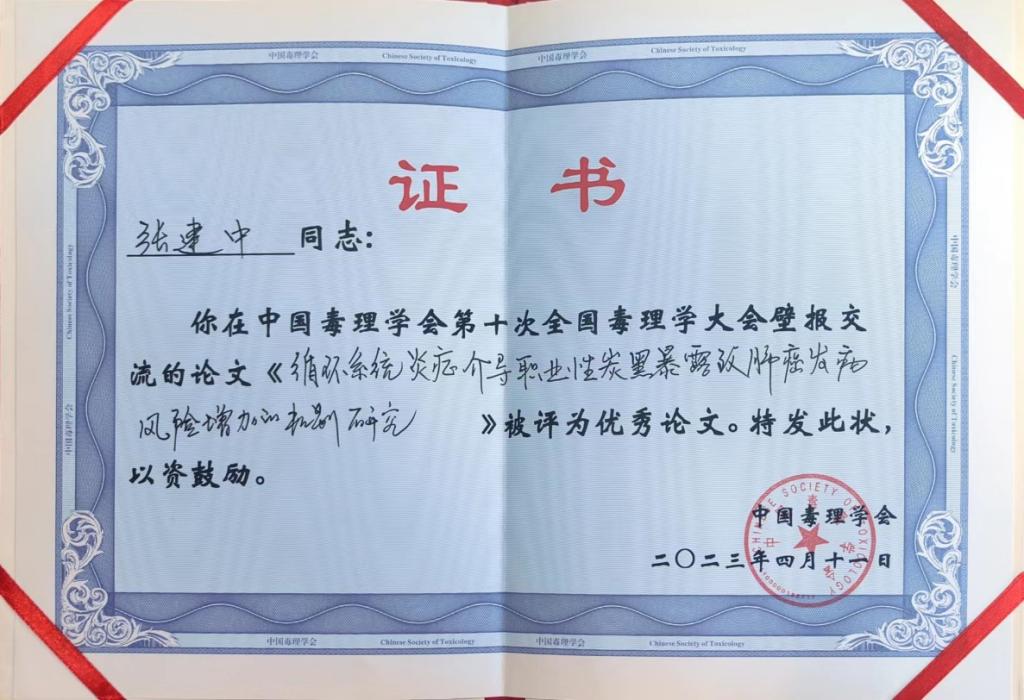 中国毒理学会 Chinese Society of Toxicology 中国毒理学会 Chinese Society of Toxicology
证 书
张建中 同志：
你在中国毒理学会第十次全国毒理学大会壁报交
流的论文《循环系统炎症介导职业性炭黑暴露致肺癌发病
风险增加的机制研究 》被评为优秀论文。特发此状，
以资鼓励。
中国毒理学会
二〇二三年四月十一日
CHINESE SOCIETY OF TOXICOLOGY
中国毒理学会 Chinese Society of Toxicology
中国毒理学会 Chinese Society of Toxicology
中国毒理学会 Chinese Society of Toxicology 中国毒理学会 Chinese Society of Toxicology